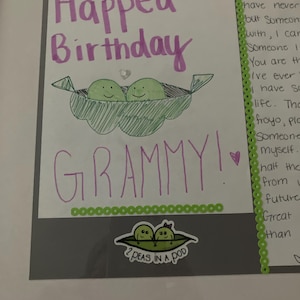 Happed
Birthday
GRAMMY!
2 PEAS IN A POD
have never
but someon
with, I can
someone I
You are th
I've ever
I have so
life. Tha
froyo, pla
Someone
myself.
half the
from w
future
Great
than